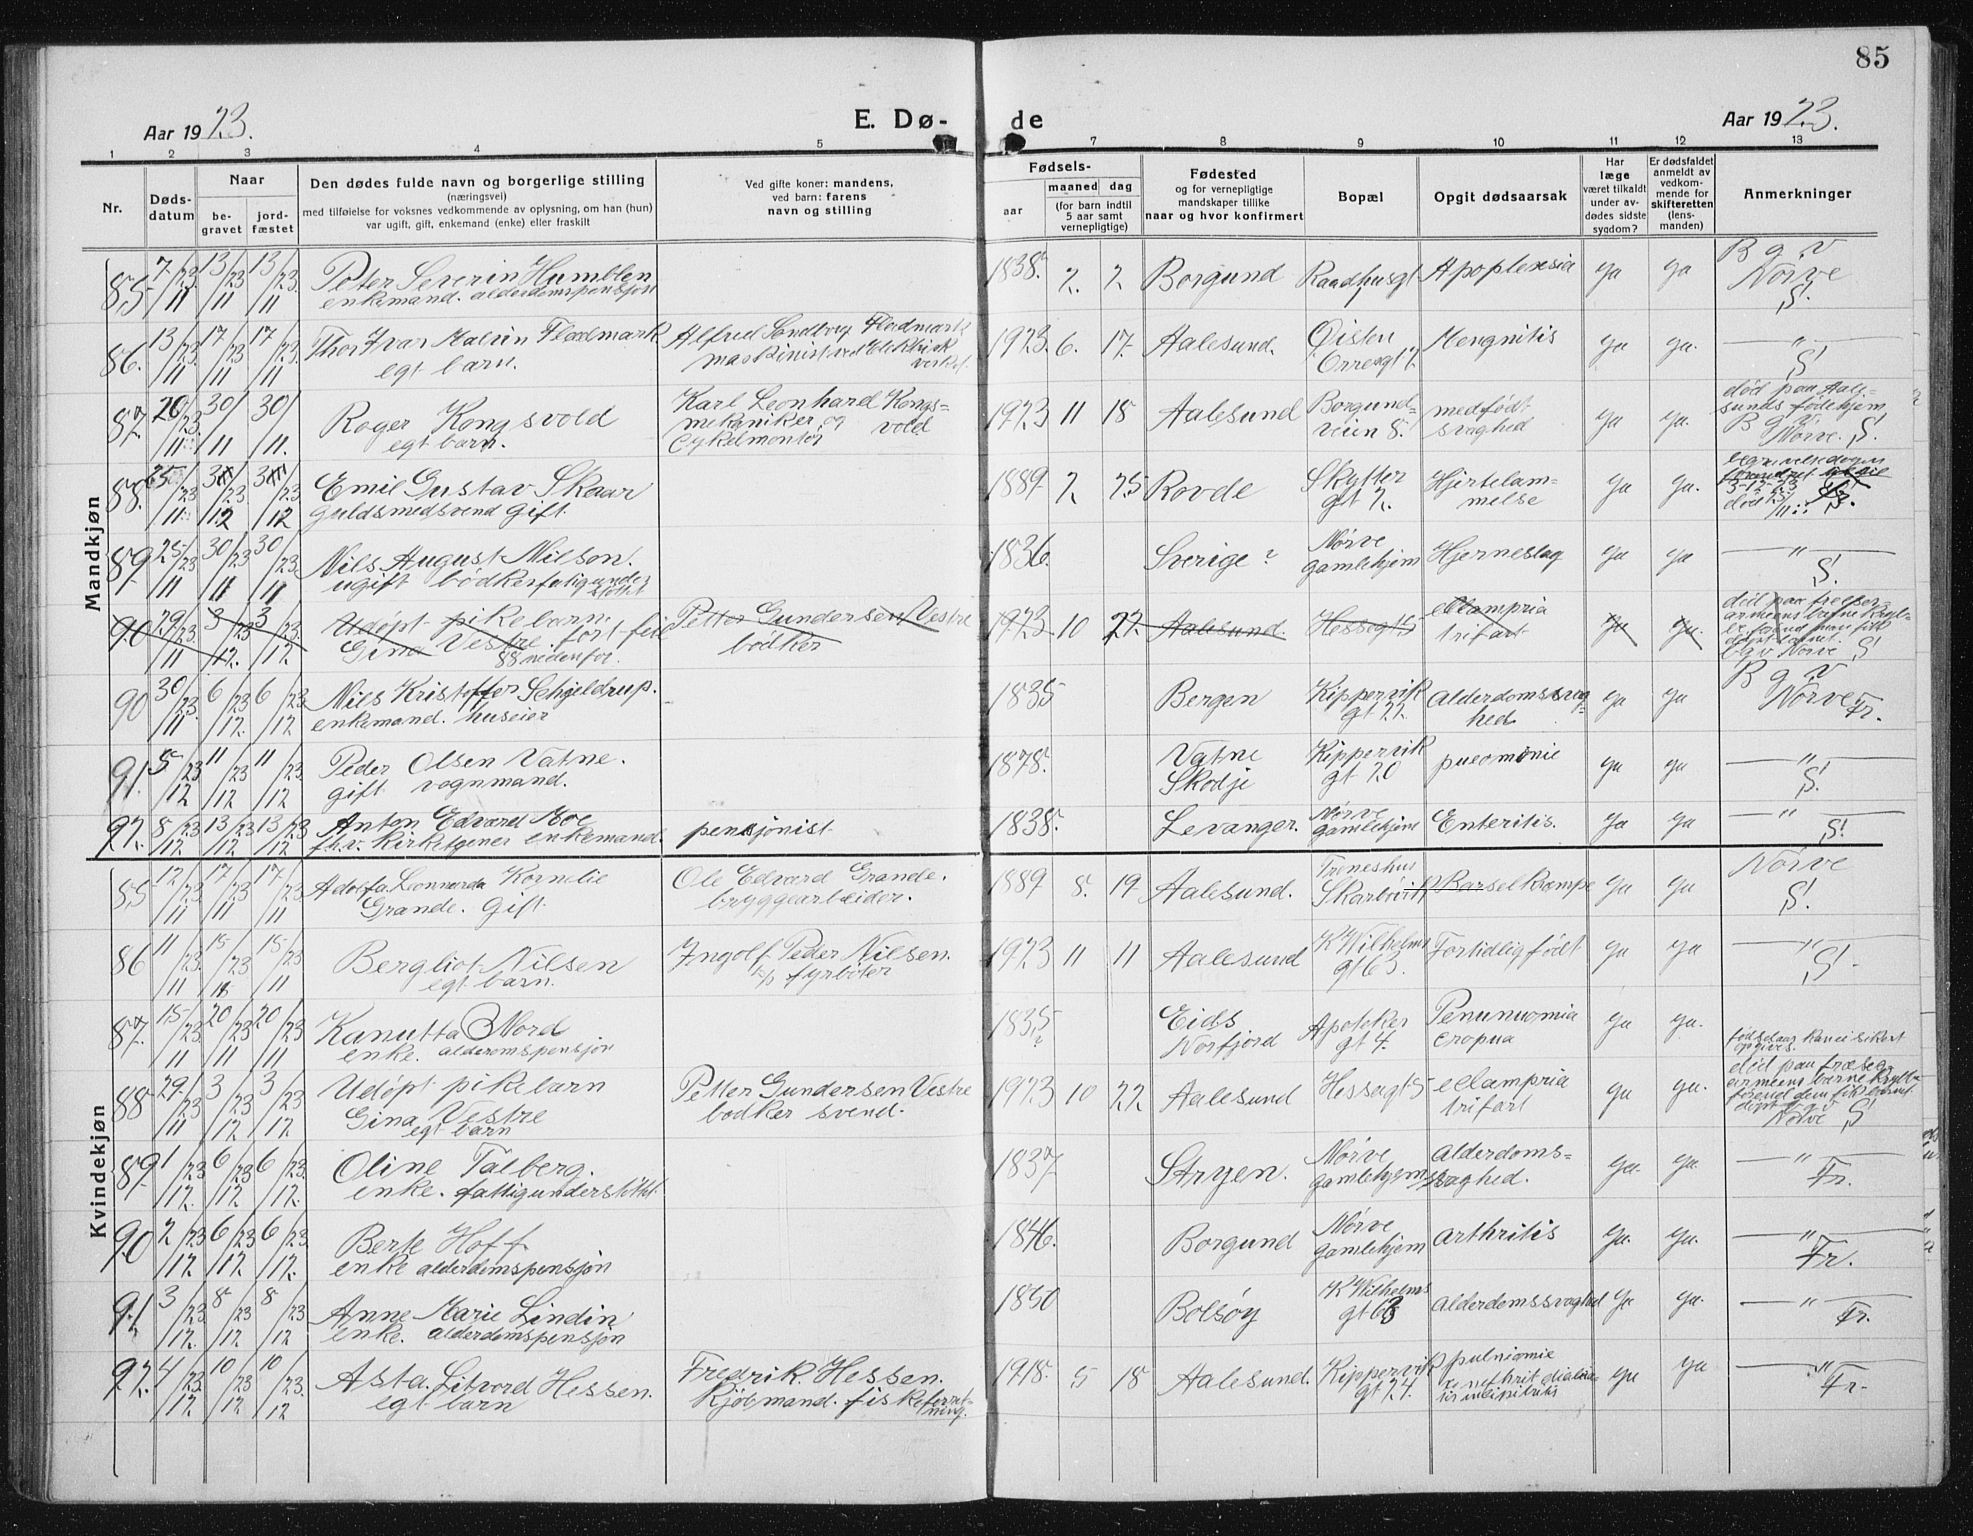 85
Aar 1923.
E. Dø-
de
Aar 1923.
1 2 3 4 5 7 8 9 10 11 12 13
Nr.
Døds-
datum
Naar
be-
gravet
jord-
fæstet
Den dødes fulde navn og borgerlige stilling
(næringsvei)
med tilføielse for voksnes vedkommende av oplysning, om han (hun)
var ugift, gift, enkemand (enke) eller fraskilt
Ved gifte koner: mandens,
ved barn: farens
navn og stilling
Fødsels-
aar
maaned
dag
(for barn indtil
5 aar samt
vernepligtige)
Fødested
og for vernepligtige
mandskaper tillike
naar og hvor konfirmert
Bopæl
Opgit dødsaarsak
Har
læge
været tilkaldt
under av-
dødes sidste
sygdom?
Er dødsfaldet
anmeldt av
vedkom-
mende for
skifteretten
(lens-
manden)
Anmerkninger
Mandkjøn
85 7/11 23 13/11 23 13/11 23 Peter Severin Humblen 1838. 2. 2 Borgund Raadhusgt Apoplexsia ja ja B g v
enkemand. alderdomspensjon Nørve
S!
86. 13/11 23 17/11 23 17/11 23 Thor Ivar Flademark Alfred Flademark 1923. 6. 17. Aalesund. Øisten Mengnitis ja ja. — " —
egt barn. maskinist ved Elektrisk Orresgt 2 S!
verket.
87. 26/11 23 30/11 30/11. Roger Kongsvold Karl Leonhard Kongs= 1923 11 18 Aalesund Borgund- medfødt ja ja. død paa Aale-
egt barn. mekaniker og vold veien 8. svaghed sunds fødehjem
Cykelmontør B g v
Nørve. S!
88. 25/11 23 3/12 23 3/12 23 Emil Gustav Skaar 1889 2 25 Rovde Skytter Hjertelam- ja ja. begravelsedagen
guldsmedsvend gift. gt 2. melse
89. 25/11 23 30/11 23 30/11 23 Nils August Nilson. 1836. Sverige? Nørve Hjerneslag ja ja — " —
ugift gamlehjem S!
90 29/11 23 3/12 23 3/12 23 Udøpt pikebarn. Petter Gundersen Vestre 1923 10 22. Aalesund. Hessagt 5 ecclampria ja ja.
Gina Vestre. bødker trifart
88 nedenfor. bgv Nørve S!
90 30/11 23 6/12 23 6/12 23 Nils Kristoffer Schjeldrup. 1835 Bergen Kippervik alderdomssvag ja ja B g v
enkemand. huseier gt 22. hed. Nørve
Fr.
91. 5/12 23 11/12 23 11/12 23 Peder Olsen Vatne. 1878. Vatne Kippervik pneomonie ja ja — " —
gift vognmand. Skodje gt 20 S!
92. 8/12 23 13/12 23 13/12 23 Anton Edvard Moe pensjonist. 1838. Levanger. Nørve Enteritis. ja ja — " —
f.h.v. Kirketjener enkemand. gamlehjem S!
Kvindekjøn
85 12/11 23 17/11 23 17/11 23 Adolfa Leonnarda Kornelie Ole Edvard Grande. 1889 8. 19 Aalesund. Skarbøvik Barselkrampe ja ja Nørve
Grande. gift bryggearbeider. S!
86 11/11 23 15/11 23 15/11 23 Bergliot Nilsen Ingolf Peder Nilsen. 1923 11 11 Aalesund K Wilhelms Fortidlig født ja ja — " —
egt barn. fyrbøter gt 63. S!
87. 15/11 23 20/11 23 20/11 23 Kanutta Nord 1835 Eids Apoteker Penunuomia ja ja.
enke. alderdomspensjon ? Norfjord gt 4. cropua fødselaar kan ei sikert
opgives.
88 29/11 23 3/12 23 3/12 23 Udøpt pikebarn Petter Gundersen Vestre 1923 10 22. Aalesund Hessagt 5 ecclampria ja ja.
Gina Vestre bødker svend. trifart
egt barn Nørve S!
89 1/12 23 6/12 23 6/12 23 Oline Talberg. 1837 Stryen. Nørve alderdoms= ja. ja. — " —
enke. fattigunderstøttet gamlehjem svaghed. Fr.
90 2/12 23 6/12 23 6/12 23 Berte Hoff. 1846. Borgund Nørve arthritis ja. ja. — " —
enke alderdomspensjon gamlehjem Fr.
91 3/12 23 8/12 23 8/12 23 Anne Marie Lindin 1830 Bolsøy K Wilhelms alderdomssvaghed ja ja. — " —
enke. alderdomspensjon gt 63 Fr.
92. 4/12 23 10/12 23 10/12 23 Asta Hessen. Fredrik Hessen. 1918. 5 18 Aalesund. Kippervik ja ja — " —
egt barn Kjøbmand. fiskeforret- gt 24. Fr.
ning.